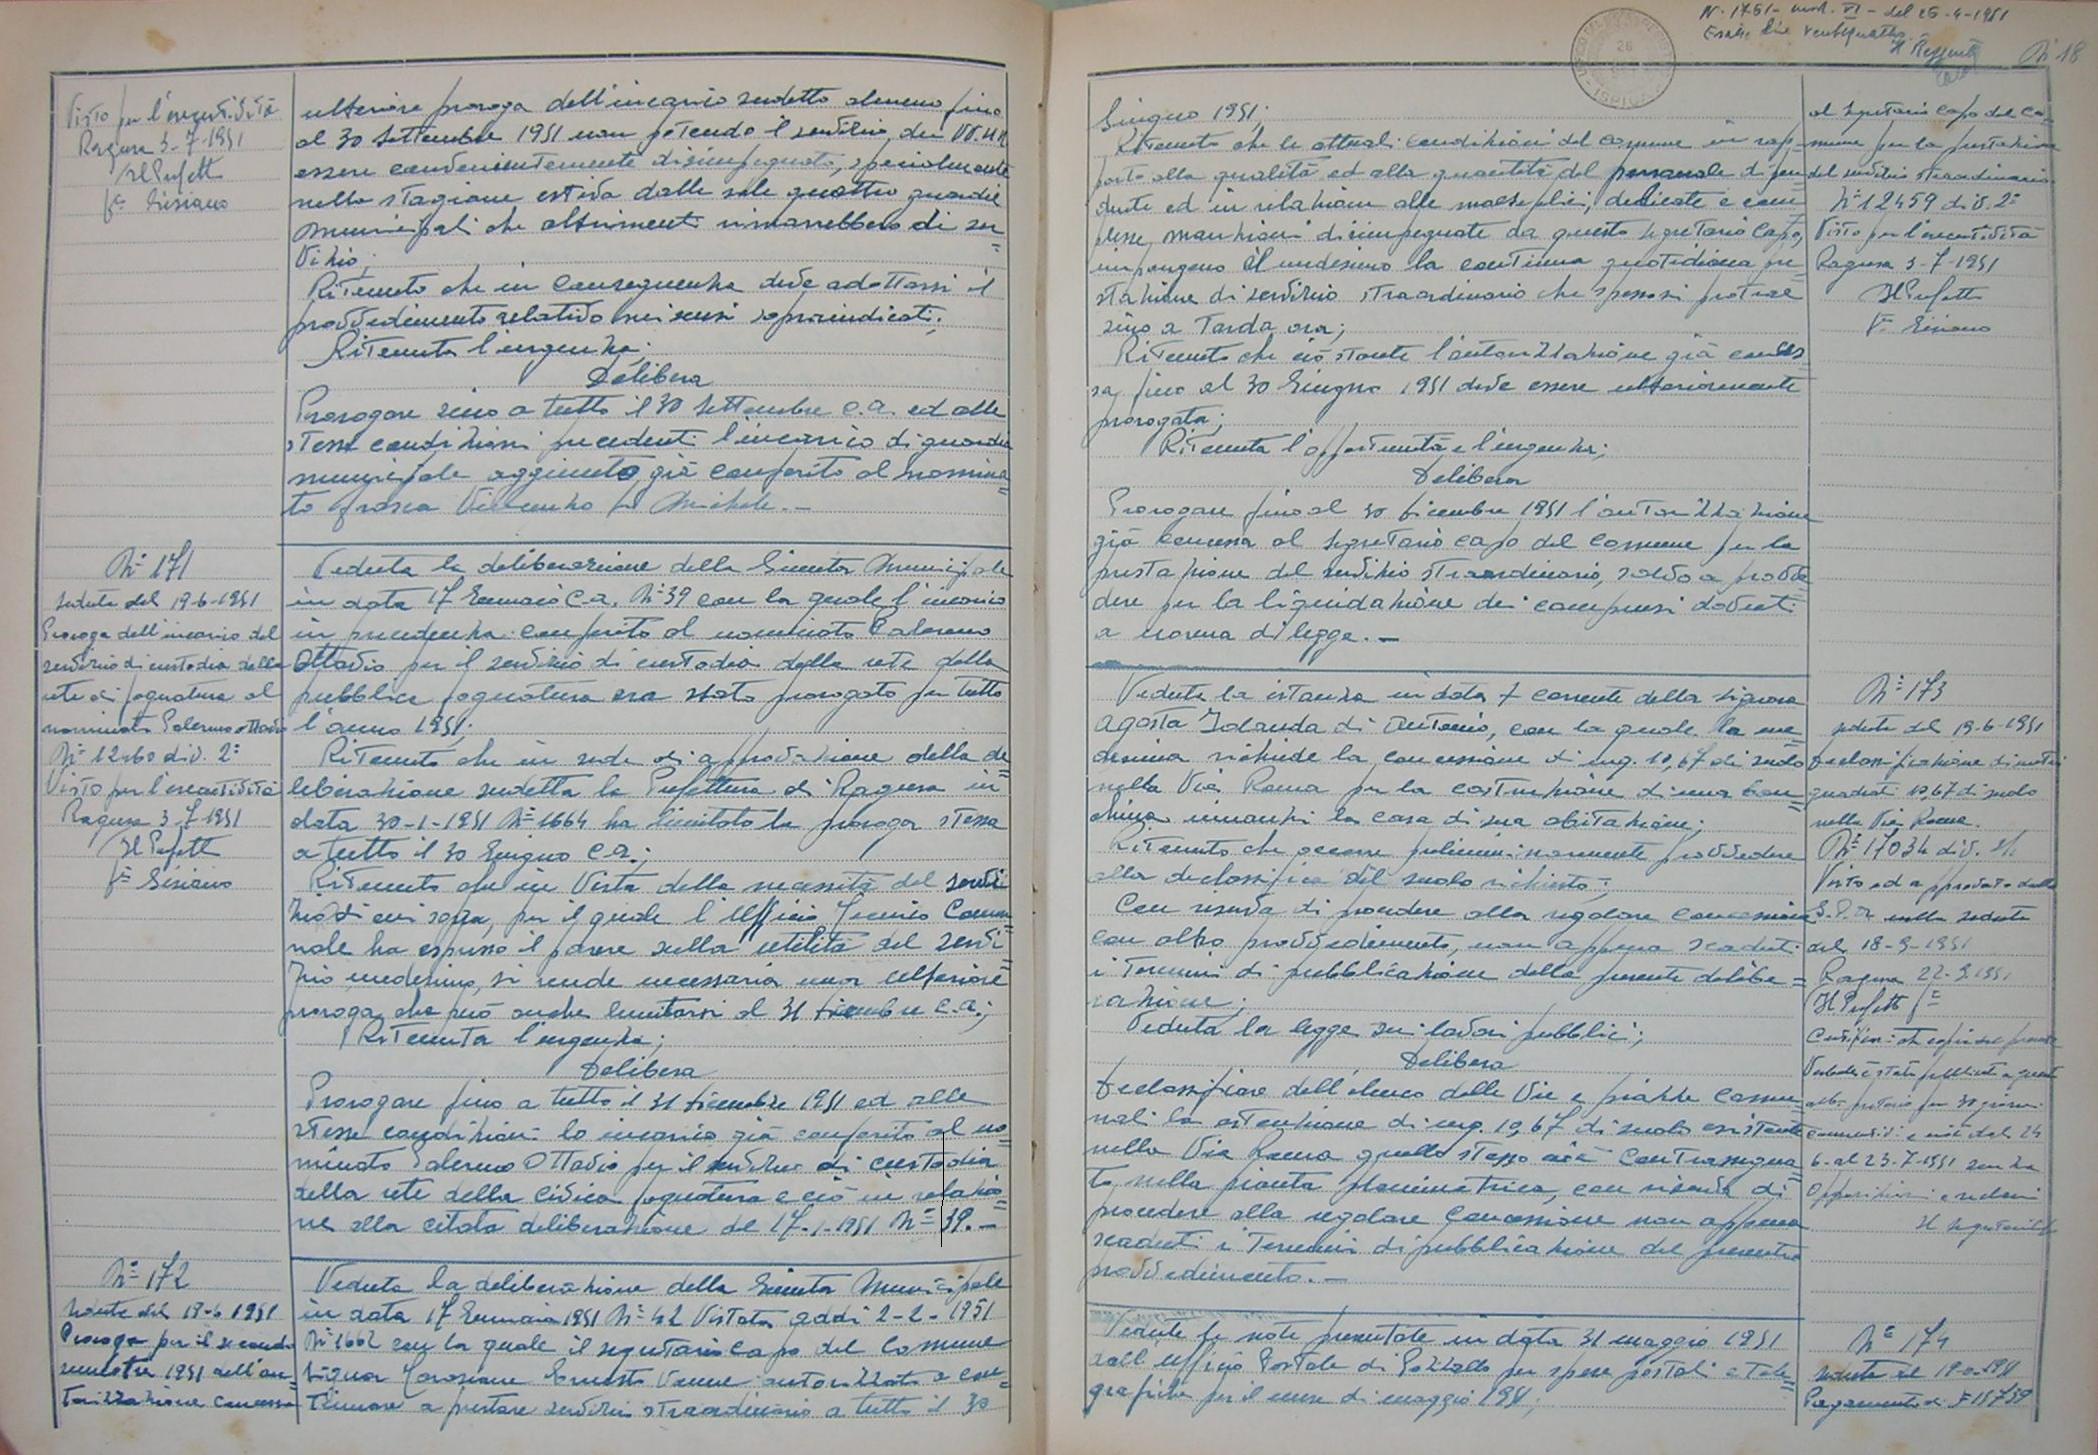 Visto per l'esecutività
Ragusa 3-7-1951
Il Prefetto
f= Sisiano
ulteriore proroga dell'incarico sudetto almeno fino
al 30 settembre 1951 non potendo il servizio dei VV.UU.
essere convenientemente disimpegnato, specialmente
nella stagione estiva dalle sole quattro guardie
municipali che altrimenti rimarrebbero di ser=
vizio;
Ritenuto che in conseguenza deve adottarsi il
provvedimento relativo nei sensi sopraindicati;
Ritenuta l'urgenza;
Delibera
Prorogare sino a tutto il 30 settembre c.a. ed alle
stesse condizioni precedenti l'incarico di guardia
municipale aggiunto già conferito al nomina=
to Vincenzo fu Michele.-
N= 171
seduta del 19-6-1951
Proroga dell'incarico del
servizio di custodia della
rete di fognatura al
nominato Salerno Ottavio
N= 12460 div. 2=
Visto per l'esecutività
Ragusa 3-7-1951
Il Prefetto
f= Sisiano
Veduta la deliberazione della Giunta Municipale
in data 17 Gennaio c.a. N= 39 con la quale l'incarico
in precedenza conferito al nominato Salerno
Ottavio per il servizio di custodia della rete della
pubblica fognatura era stato prorogato per tutto
l'anno 1951;
Ritenuto che in sede di approvazione della de=
liberazione sudetta la Prefettura di Ragusa in
data 30-1-1951 N= 1664 ha limitato la proroga stessa
a tutto il 30 Giugno c.a.;
Ritenuto che in vista della necessità del servi
zio di cui sopra, per il quale l'Ufficio Tecnico Comu=
nale ha espresso il parere sulla utilità del servi=
zio medesimo, si rende necessaria una ulteriore
proroga che può anche limitarsi al 31 dicembre c.a.;
Ritenuta l'urgenza;
Delibera
Prorogare fino a tutto il 31 dicembre 1951 ed alle
stesse condizioni lo incarico già conferito al no=
minato Salerno Ottavio per il servizio di custodia
della rete della civica fognatura e ciò in relazio=
ne alla citata deliberazione del 17-1-1951 N= 39.-
N= 172
seduta del 19-6-1951
Proroga per il secondo
semestre 1951 dell'au=
torizzazione concessa
Veduta la deliberazione della Giunta Municipale
in data 17 Gennaio 1951 N= 42 vistata addì 2-2-1951
N= 1662 con la quale il segretario capo del Comune
signor Ernesto venne autorizzato a con=
tinuare a prestare servizio straordinario a tutto il 30
N. 1751 - mod. VI - del 26-4-1951
ISPICA
N= 18
Giugno 1951;
Ritenuto che le attuali condizioni del Comune in rap=
porto alla qualità ed alla quantità del personale dipen=
dente ed in relazione alle molteplici, delicate e com
plesse, mansioni disimpegnate da questo segretario capo,
impongono al medesimo la continua quotidiana pre=
stazione di servizio straordinario che spesso si protrae
sino a tarda ora;
Ritenuto che ciò stante l'autorizzazione già conces
sa, fino al 30 Giugno 1951 deve essere ulteriormente
prorogata;
Ritenuta l'opportunità e l'urgenza;
Delibera
Prorogare fino al 30 dicembre 1951 l'autorizzazione
già concessa al segretario capo del Comune per la
prestazione del servizio straordinario, salvo a provve
dere per la liquidazione dei compensi dovuti
a norma di legge.-
al segretario capo del co=
mune per la prestazione
del servizio straordinario
N= 12459 div. 2=
Visto per l'esecutività
Ragusa 3-7-1951
Il Prefetto
f= Sisiano
Veduta la istanza in data 7 corrente della signora
Agosta Iolanda di Antonio, con la quale la me=
desima richiede la concessione di mq. 10,67 di suolo
nella Via Roma per la costruzione di una ban=
china innanzi la casa di sua abitazione;
Ritenuto che occorre preliminarmente provvedere
alla declassifica del suolo richiesto;
Con riserva di procedere alla regolare concessione
con altro provvedimento, non appena scaduti
i termini di pubblicazione della presente delibe=
razione;
Veduta la legge sui lavori pubblici;
Delibera
Declassificare dall'elenco delle Vie e piazze comu=
nali la estensione di mq. 10,67 di suolo esistente
nella Via Roma quello stesso già contrassegna
to nella pianta planimetrica, con riserva di
procedere alla regolare concessione non appena
scaduti i termini di pubblicazione del presente
provvedimento.-
N= 173
seduta del 19-6-1951
Declassificazione di metri
quadrati 10,67 di suolo
nella Via Roma.
N= 17034 div.
Visto ed approvato dalla
G.P.A. nella seduta
del 18-9-1951
Ragusa 22-9-1951
Il Prefetto f=
Certificasi che copia del presente
verbale è stato pubblicato a questo
albo pretorio per 30 giorni
consecutivi e cioè dal 24
6- al 23-7-1951 senza
opposizioni e reclami
Il segretario
Vedute le note presentate in data 31 maggio 1951
dall'ufficio Postale di Pozzallo per spese postali e tele=
grafiche per il mese di maggio 1951;
N= 174
seduta del 19-6-1951
Pagamento di £ 15759